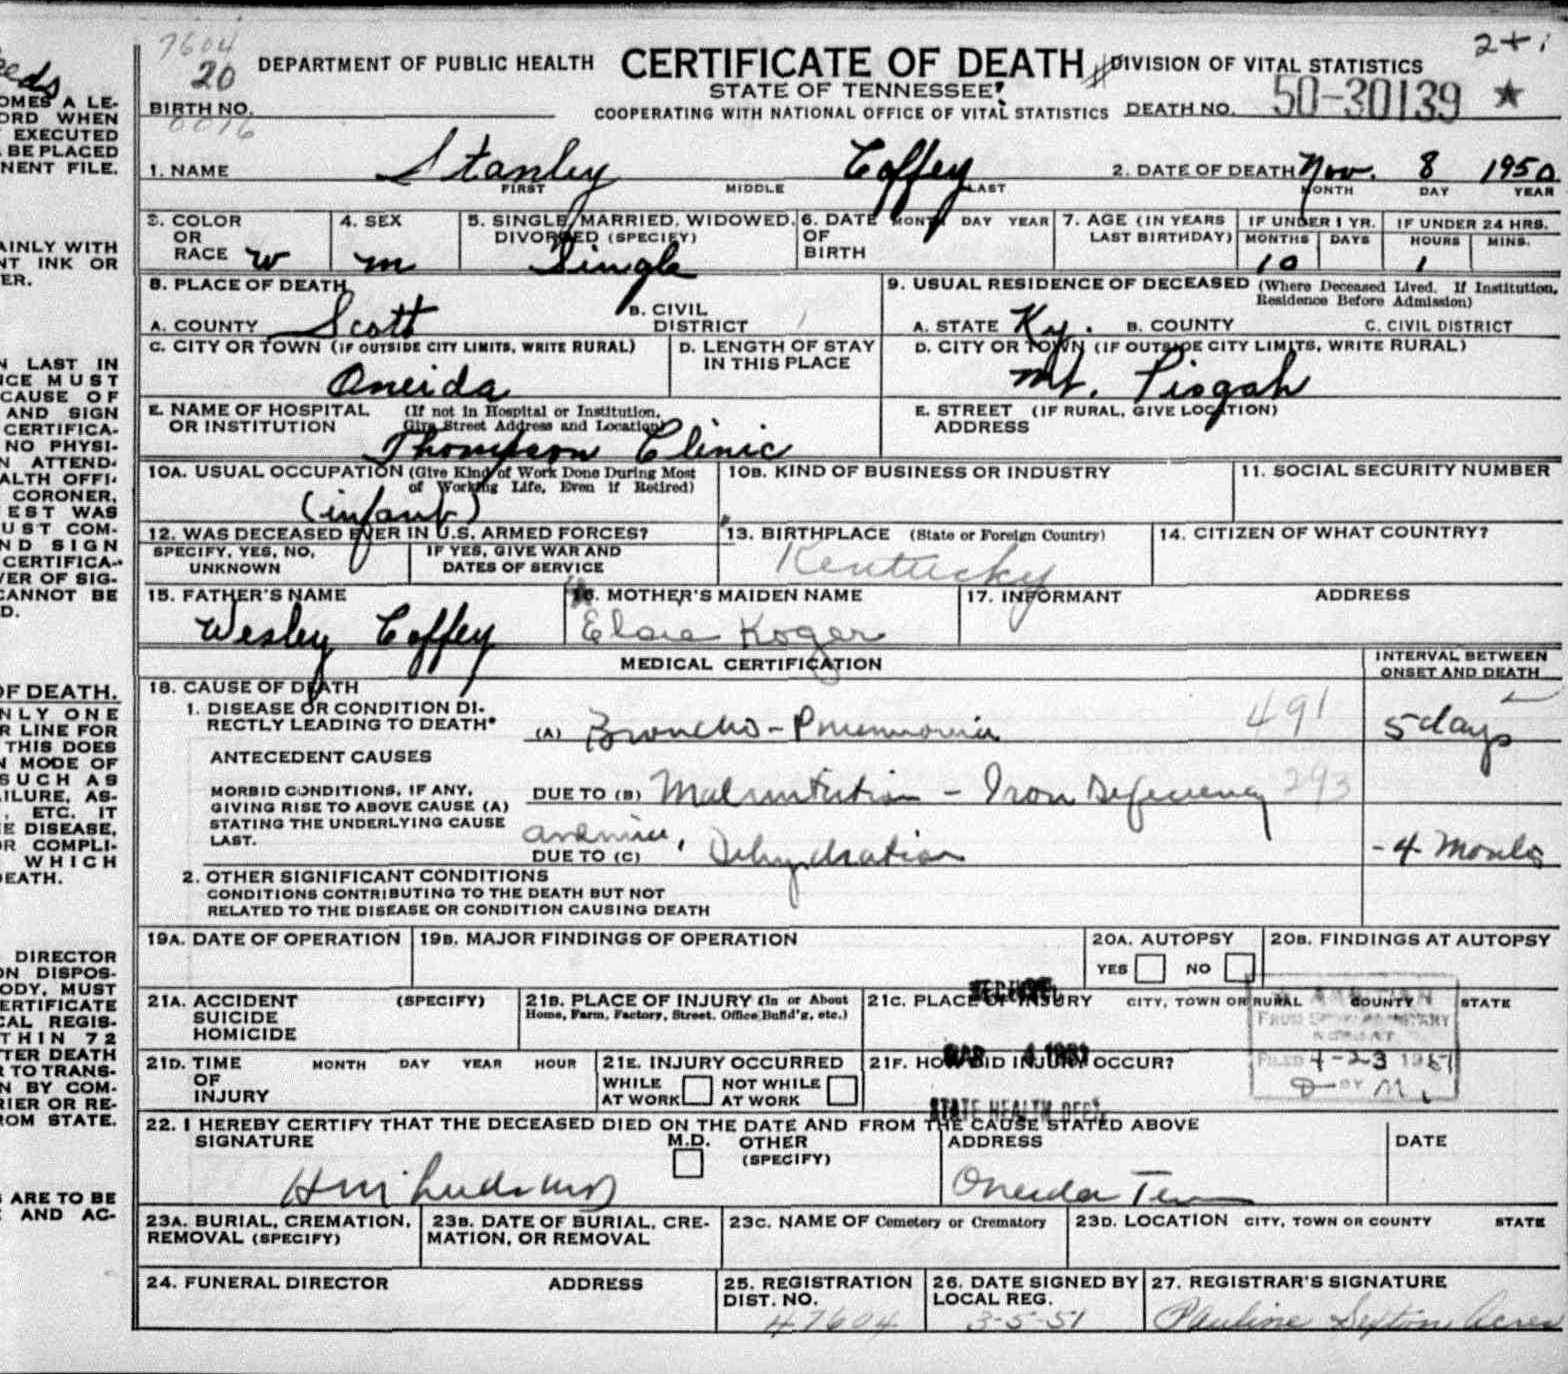 7604
20
DEPARTMENT OF PUBLIC HEALTH
CERTIFICATE OF DEATH
DIVISION OF VITAL STATISTICS
2+1
STATE OF TENNESSEE
BIRTH NO.
COOPERATING WITH NATIONAL OFFICE OF VITAL STATISTICS
DEATH NO. 50-30139 ★
1. NAME Stanley Coffey 2. DATE OF DEATH Nov. 8 1950
FIRST MIDDLE LAST MONTH DAY YEAR
3. COLOR OR RACE W
4. SEX m
5. SINGLE, MARRIED, WIDOWED, DIVORCED (SPECIFY) Single
6. DATE OF BIRTH MONTH DAY YEAR
7. AGE (IN YEARS LAST BIRTHDAY)
IF UNDER 1 YR. MONTHS 10 DAYS
IF UNDER 24 HRS. HOURS 1 MINS.
8. PLACE OF DEATH
A. COUNTY Scott B. CIVIL DISTRICT
9. USUAL RESIDENCE OF DECEASED (Where Deceased Lived. If Institution, Residence Before Admission)
A. STATE Ky. B. COUNTY C. CIVIL DISTRICT
C. CITY OR TOWN (IF OUTSIDE CITY LIMITS, WRITE RURAL) Oneida
D. LENGTH OF STAY IN THIS PLACE
D. CITY OR TOWN (IF OUTSIDE CITY LIMITS, WRITE RURAL) Mt. Pisgah
E. NAME OF HOSPITAL OR INSTITUTION (If not in Hospital or Institution, Give Street Address and Location) Thompson Clinic
E. STREET ADDRESS (IF RURAL, GIVE LOCATION)
10A. USUAL OCCUPATION (Give Kind of Work Done During Most of Working Life, Even if Retired) (infant)
10B. KIND OF BUSINESS OR INDUSTRY
11. SOCIAL SECURITY NUMBER
12. WAS DECEASED EVER IN U.S. ARMED FORCES?
SPECIFY, YES, NO, UNKNOWN
IF YES, GIVE WAR AND DATES OF SERVICE
13. BIRTHPLACE (State or Foreign Country) Kentucky
14. CITIZEN OF WHAT COUNTRY?
15. FATHER'S NAME Wesley Coffey
16. MOTHER'S MAIDEN NAME Elsie Koger
17. INFORMANT ADDRESS
MEDICAL CERTIFICATION
INTERVAL BETWEEN ONSET AND DEATH
18. CAUSE OF DEATH
1. DISEASE OR CONDITION DIRECTLY LEADING TO DEATH* (A) Broncho-Pneumonia 491 5 days
ANTECEDENT CAUSES
MORBID CONDITIONS, IF ANY, GIVING RISE TO ABOVE CAUSE (A) STATING THE UNDERLYING CAUSE LAST.
DUE TO (B) Malnutrition - Iron Deficiency 293
anemia,
DUE TO (C) Dehydration - 4 Months
2. OTHER SIGNIFICANT CONDITIONS
CONDITIONS CONTRIBUTING TO THE DEATH BUT NOT
RELATED TO THE DISEASE OR CONDITION CAUSING DEATH
19A. DATE OF OPERATION
19B. MAJOR FINDINGS OF OPERATION
20A. AUTOPSY YES NO
20B. FINDINGS AT AUTOPSY
21A. ACCIDENT SUICIDE HOMICIDE (SPECIFY)
21B. PLACE OF INJURY (In or About Home, Farm, Factory, Street, Office Build'g, etc.)
21C. PLACE OF INJURY CITY, TOWN OR RURAL COUNTY STATE
21D. TIME OF INJURY MONTH DAY YEAR HOUR
21E. INJURY OCCURRED
WHILE AT WORK NOT WHILE AT WORK
21F. HOW DID INJURY OCCUR?
FILED 4-23 1951
BY M.
STATE HEALTH DEPT.
22. I HEREBY CERTIFY THAT THE DECEASED DIED ON THE DATE AND FROM THE CAUSE STATED ABOVE
SIGNATURE M.D. OTHER (SPECIFY)
ADDRESS Oneida Tenn
DATE
23A. BURIAL, CREMATION, REMOVAL (SPECIFY)
23B. DATE OF BURIAL, CREMATION, OR REMOVAL
23C. NAME OF Cemetery or Crematory
23D. LOCATION CITY, TOWN OR COUNTY STATE
24. FUNERAL DIRECTOR ADDRESS
25. REGISTRATION DIST. NO. 47604
26. DATE SIGNED BY LOCAL REG. 3-5-51
27. REGISTRAR'S SIGNATURE Pauline Sexton Acres